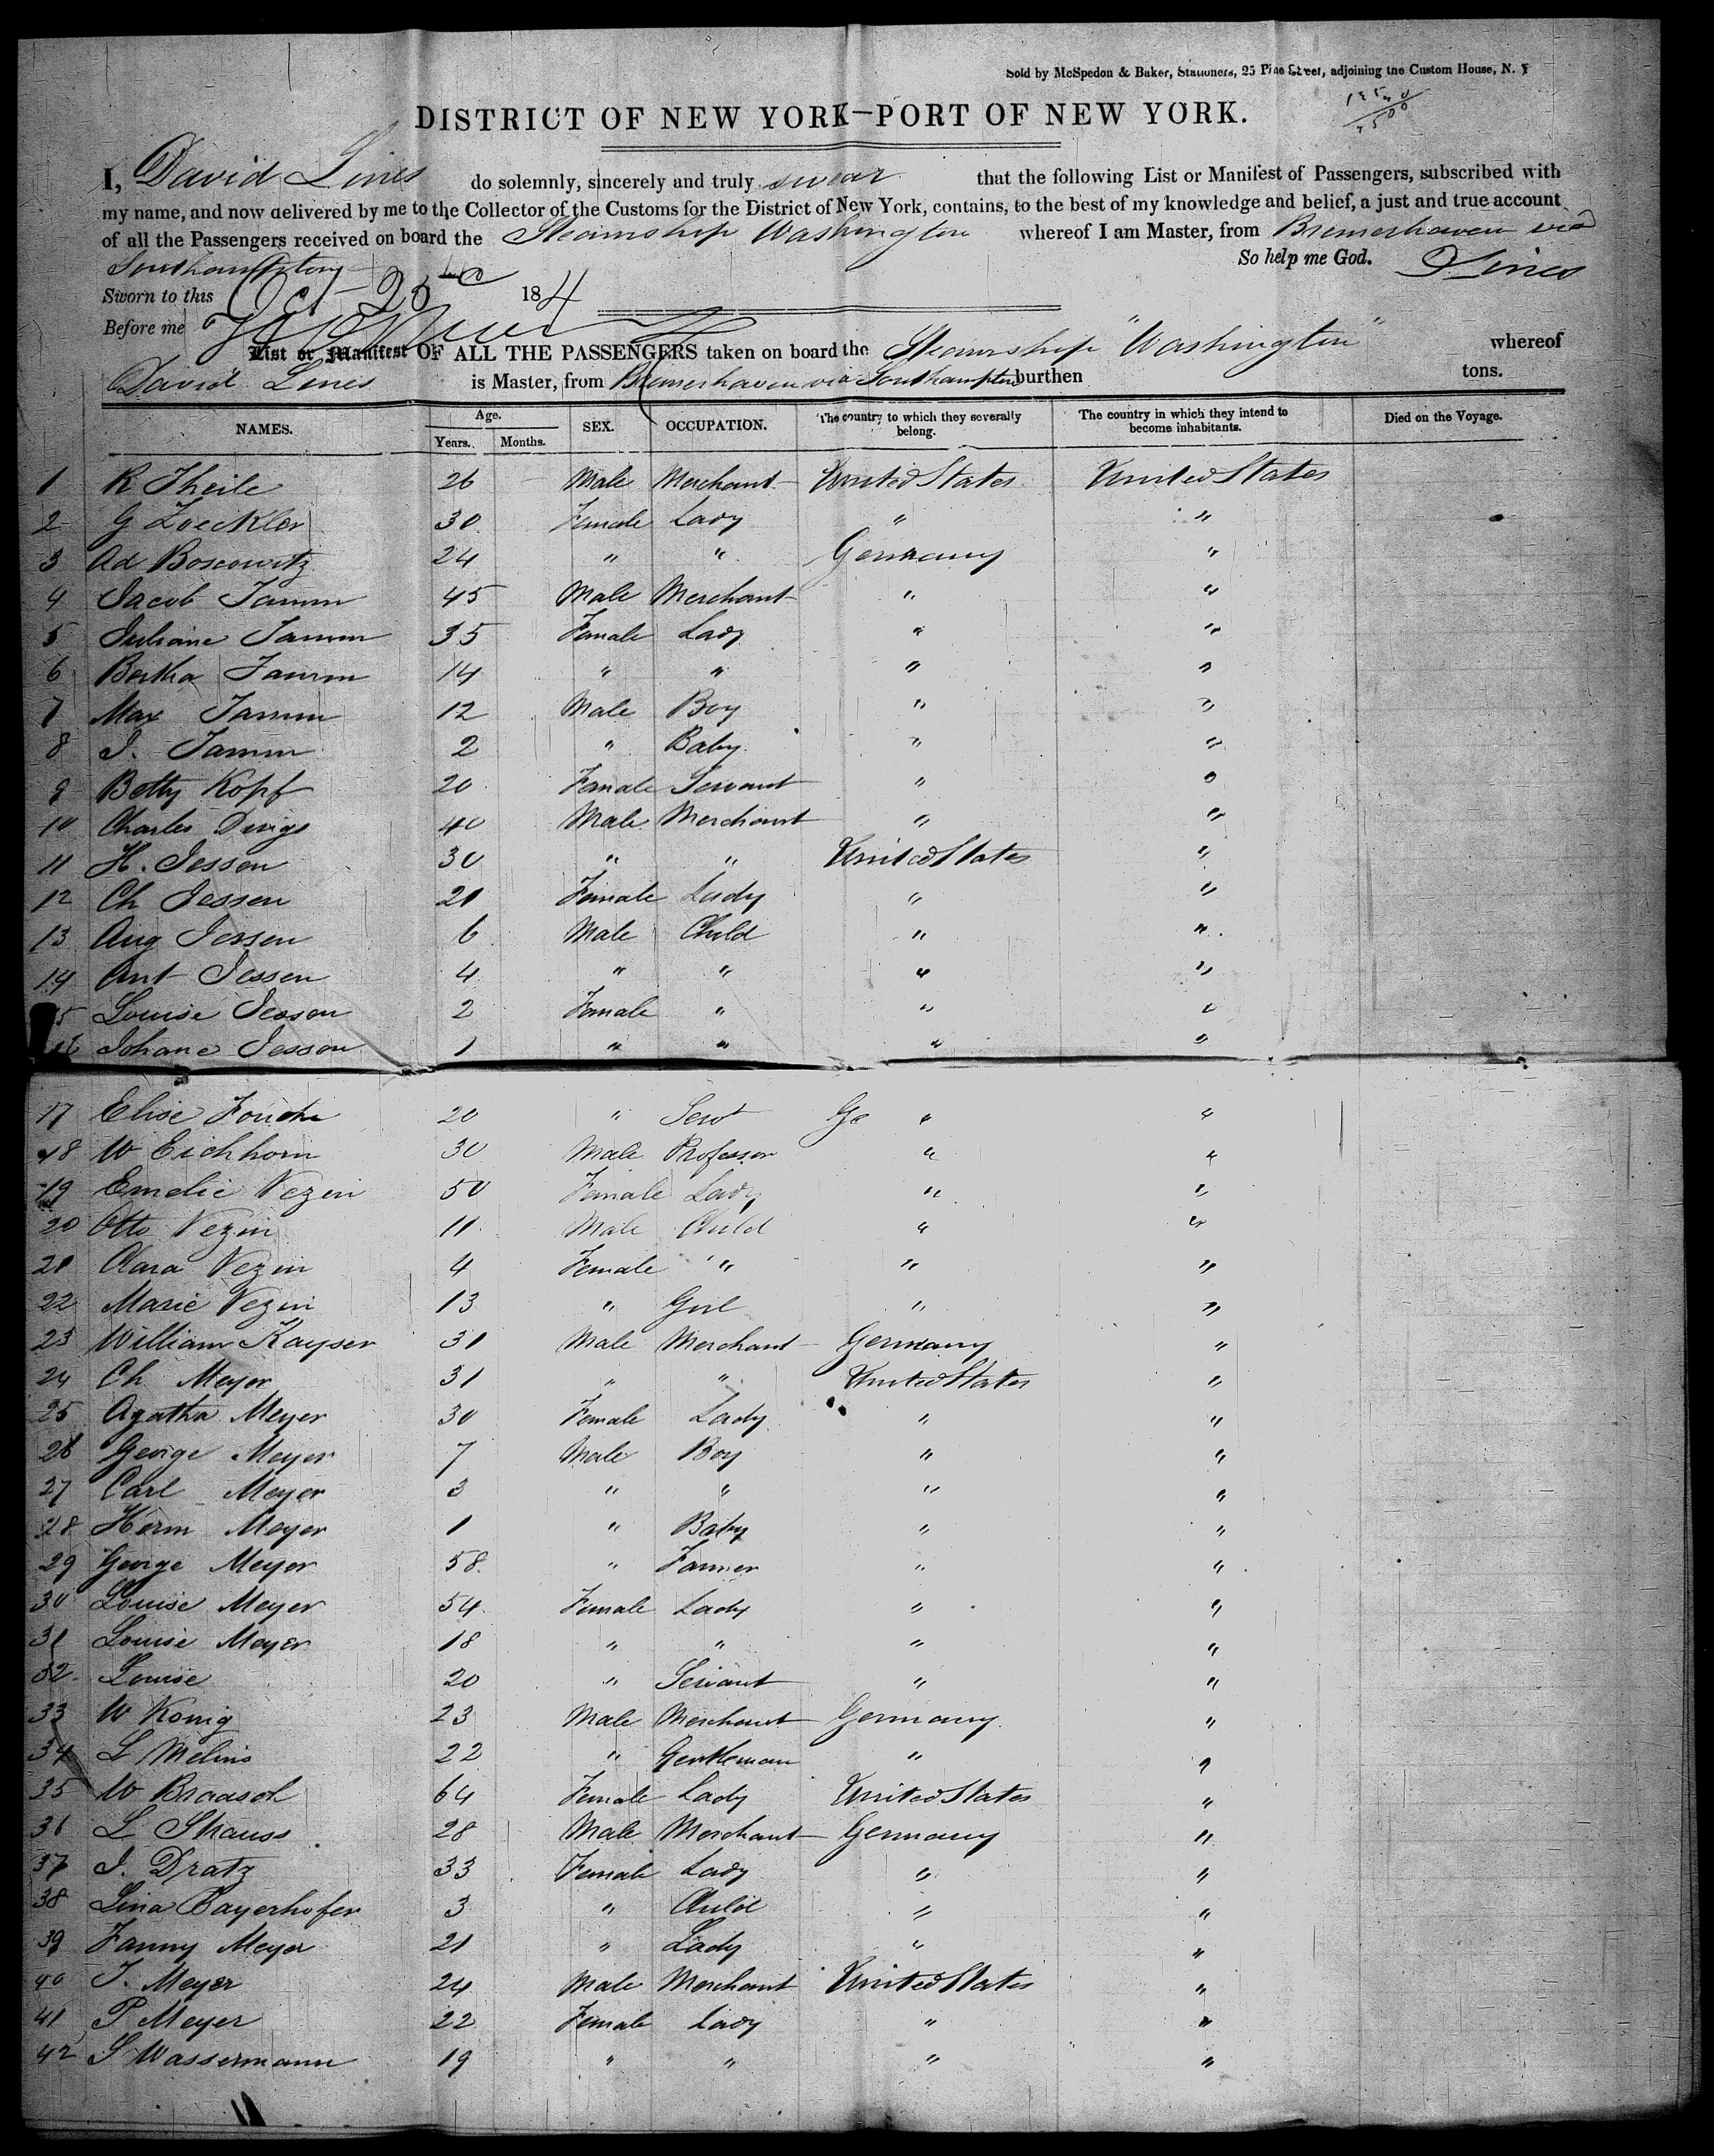 Sold by McSpedon & Baker, Stationers, 25 Pine Street, adjoining the Custom House, N. Y
DISTRICT OF NEW YORK—PORT OF NEW YORK.
I, David Lines do solemnly, sincerely and truly swear that the following List or Manifest of Passengers, subscribed with
my name, and now delivered by me to the Collector of the Customs for the District of New York, contains, to the best of my knowledge and belief, a just and true account
of all the Passengers received on board the Steamship Washington whereof I am Master, from Bremerhaven via
Southampton So help me God. D Lines
Sworn to this Oct 25 184
Before me
List or Manifest OF ALL THE PASSENGERS taken on board the Steamship "Washington" whereof
David Lines is Master, from Bremerhaven via Southampton burthen tons.
NAMES. Age. Years. Months. SEX. OCCUPATION. The country to which they severally belong. The country in which they intend to become inhabitants. Died on the Voyage.
1 R Theile 26 Male Merchant United States United States
2 G Zoeckler 30 Female Lady " "
3 Ad Boscowitz 24 " " Germany "
4 Jacob Tamm 45 Male Merchant " "
5 Juliane Tamm 35 Female Lady " "
6 Bertha Tamm 14 " " " "
7 Max Tamm 12 Male Boy " "
8 J. Tamm 2 " Baby " "
9 Betty Kopf 20 Female Servant " "
10 Charles 40 Male Merchant " "
11 H. Jessen 30 " " United States "
12 Ch Jessen 21 Female Lady " "
13 Aug Jessen 6 Male Child " "
14 Ant Jessen 4 " " " "
15 Louise Jessen 2 Female " " "
16 Johane Jessen 1 " " " "
17 Elise 20 " Servt Ge " "
18 W Eichhorn 30 Male Professor " "
19 Emelie Vezin 50 Female Lady " "
20 Otto Vezin 11 Male Child " "
21 Clara Vezin 4 Female " " "
22 Marie Vezin 13 " Girl " "
23 William Kayser 31 Male Merchant Germany "
24 Ch Meyer 31 " " United States "
25 Agatha Meyer 30 Female Lady " "
26 George Meyer 7 Male Boy " "
27 Carl Meyer 3 " " " "
28 Herm Meyer 1 " Baby " "
29 George Meyer 58 " Farmer " "
30 Louise Meyer 54 Female Lady " "
31 Louise Meyer 18 " " " "
32 Louise 20 " Servant " "
33 W Konig 23 Male Merchant Germany "
34 L Melins 22 " Gentleman " "
35 W Braasch 64 Female Lady United States "
36 L Strauss 28 Male Merchant Germany "
37 J. Dratz 33 Female Lady " "
38 Lina Bayerhofer 3 " Child " "
39 Fanny Meyer 21 " Lady " "
40 J. Meyer 24 Male Merchant United States "
41 P Meyer 22 Female Lady " "
42 S Wassermann 19 " " " "